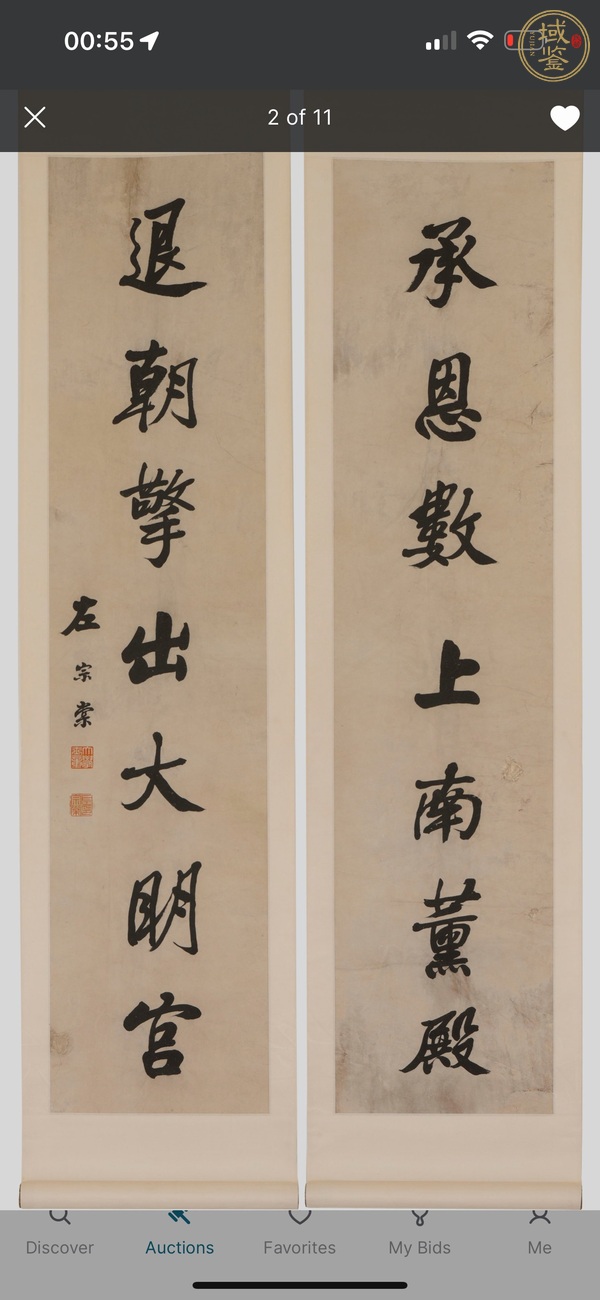 00:55
域鉴
2 of 11
承恩數上南薰殿
退朝擎出大明宮
左宗棠
Discover
Auctions
Favorites
My Bids
Me